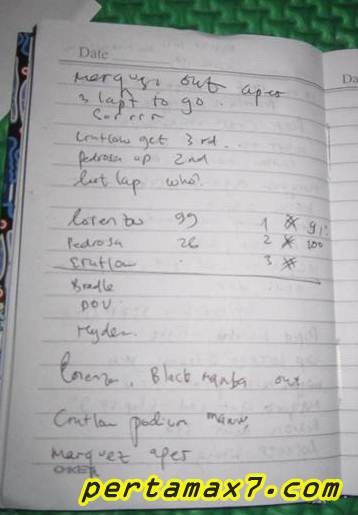 Date
Da
Marquez out apes
3 lapt to go
Corrrr
Crutlow get 3rd.
Pedrosa up 2nd
last lap who?
lorenzo 99 1
Pedrosa 26 2 100
Crutlow 3
Bradle
DOV
Hyden
Lorenzo, Black Mamba out
Crutlow podium
Marquez apes
pertamax7.com